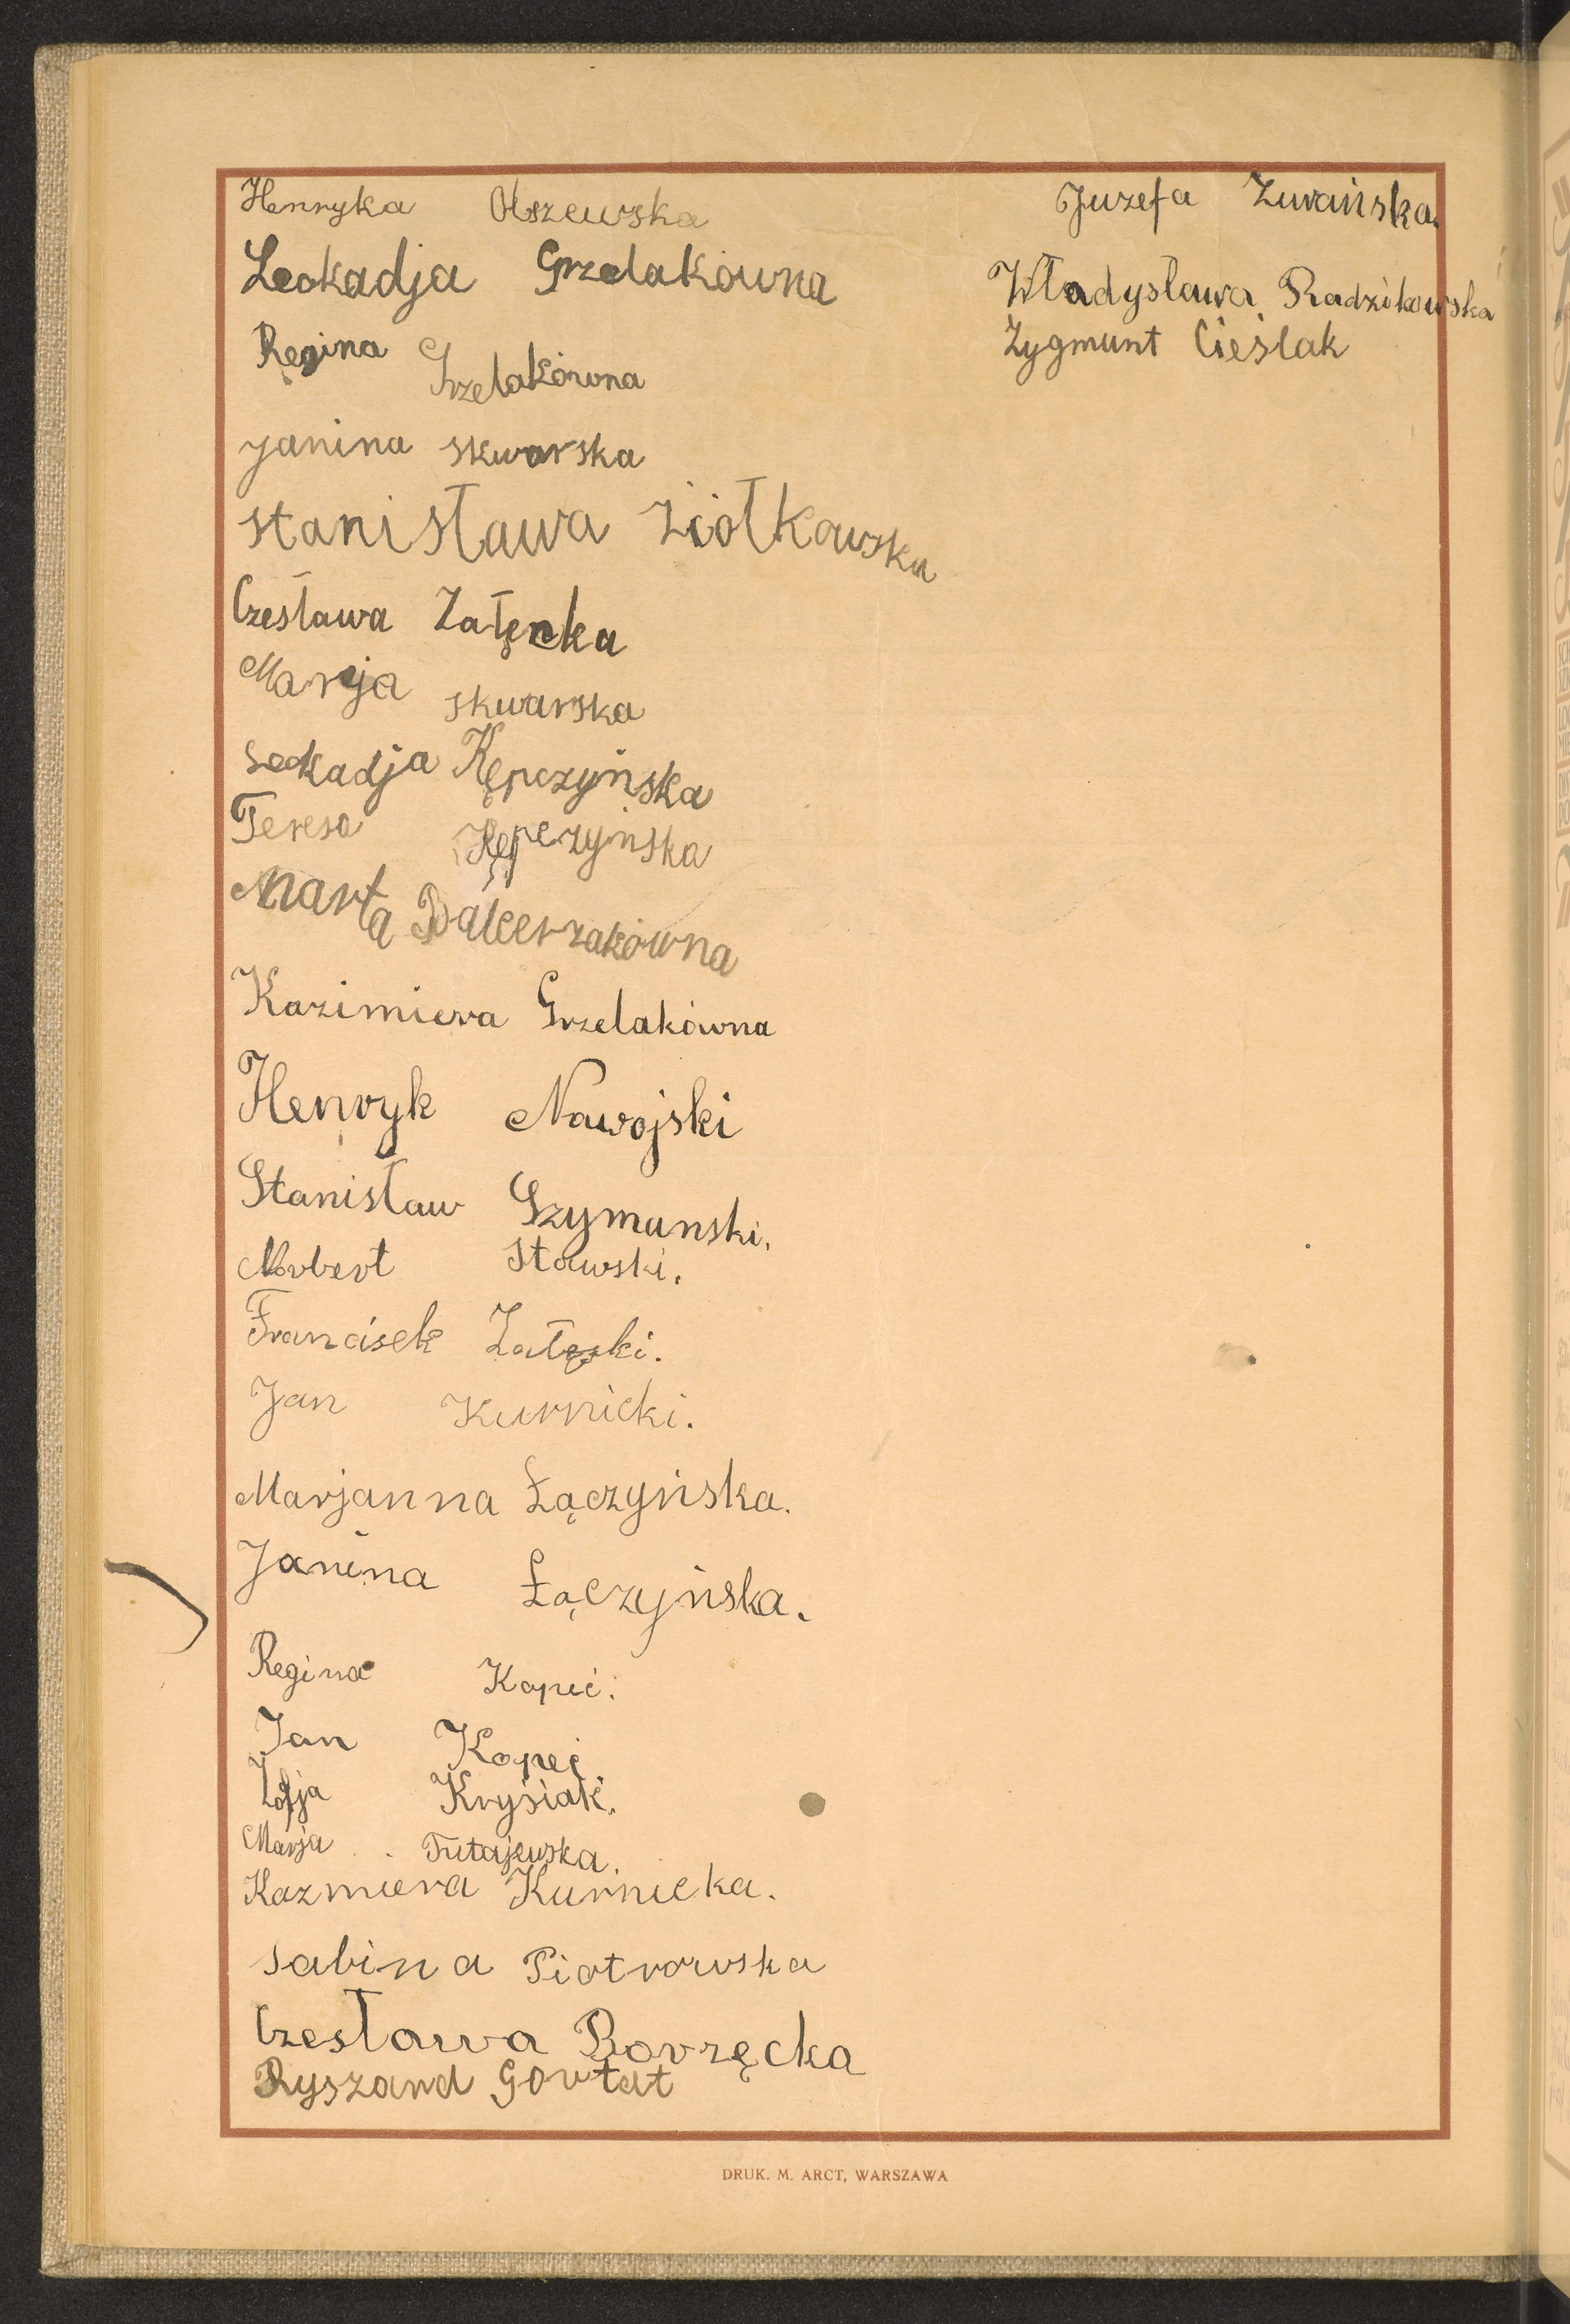 Henryka Olszewska
Leokadja Grzelakówna
Regina Grzelakówna
Janina Skwarska
Stanisława Ziółkowska
Czesława Załęcka
Marja Skwarska
Leokadja Kępczyńska
Teresa Kępczyńska
Marta Balcerzakówna
Kazimiera Grzelakówna
Henryk Nawojski
Stanisław Szymanski.
Norbert Stawski.
Francisek Załęski.
Jan Kurnicki.
Marjanna Łączyńska.
Janina Łączyńska.
Regina Kopeć.
Jan Kopeć.
Zofja Krysiak.
Marja Tutajewska.
Kazmiera Kurnicka.
Sabina Piotrowska
Czesława Borzęcka
Ryszard Gortat
Juzefa Żurańska.
Władysława Radzikowska
Zygmunt Cieślak
DRUK. M. ARCT, WARSZAWA